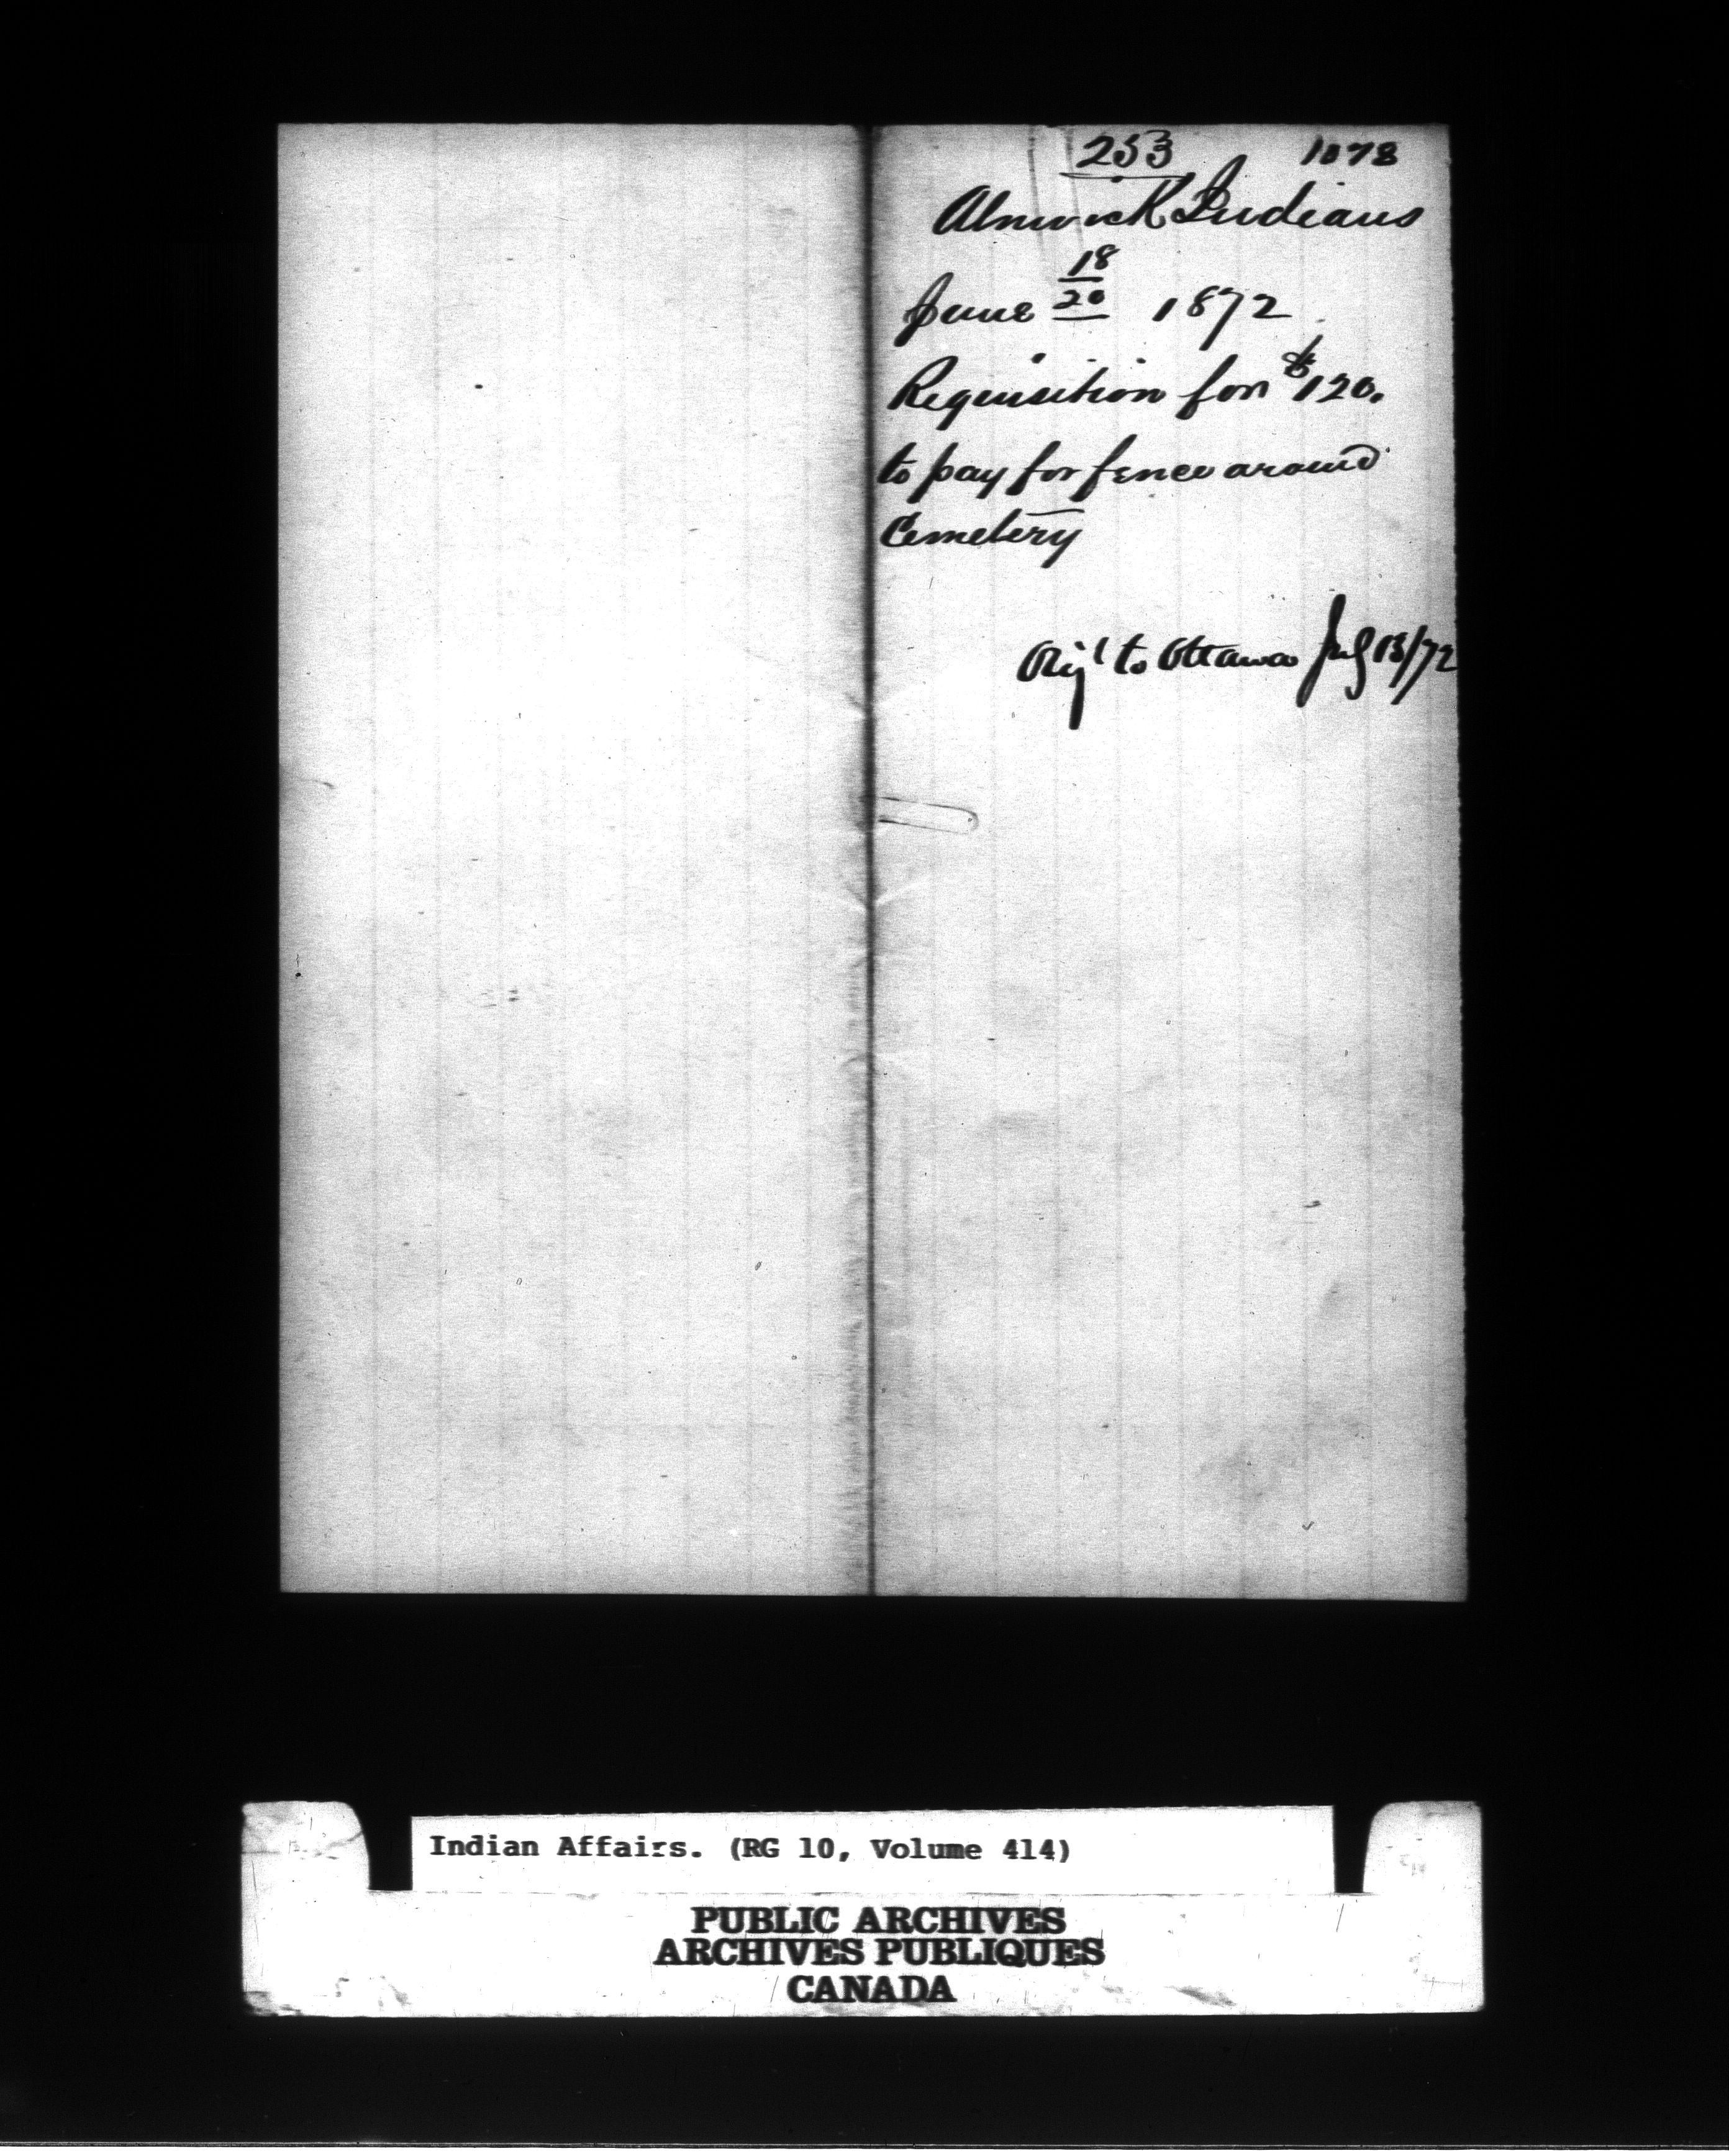 253 1078
Alnwick Indians
June 18/20 1872
Requisition for $120.
to pay for fence around
Cemetery
Orig'l to Ottawa July 13/72
Indian Affairs. (RG 10, Volume 414)
PUBLIC ARCHIVES
ARCHIVES PUBLIQUES
CANADA